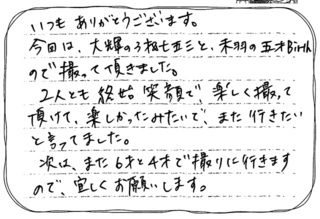 いつもありがとうございます。
今回は、大輝の3才七五三と、未羽の五才Birth
ので撮って頂きました。
2人とも終始笑顔で、楽しく撮って
頂けて、楽しかったみたいで、また行きたい
と言ってました。
次は、また6才と4才で撮りに行きます
ので、宜しくお願いします。